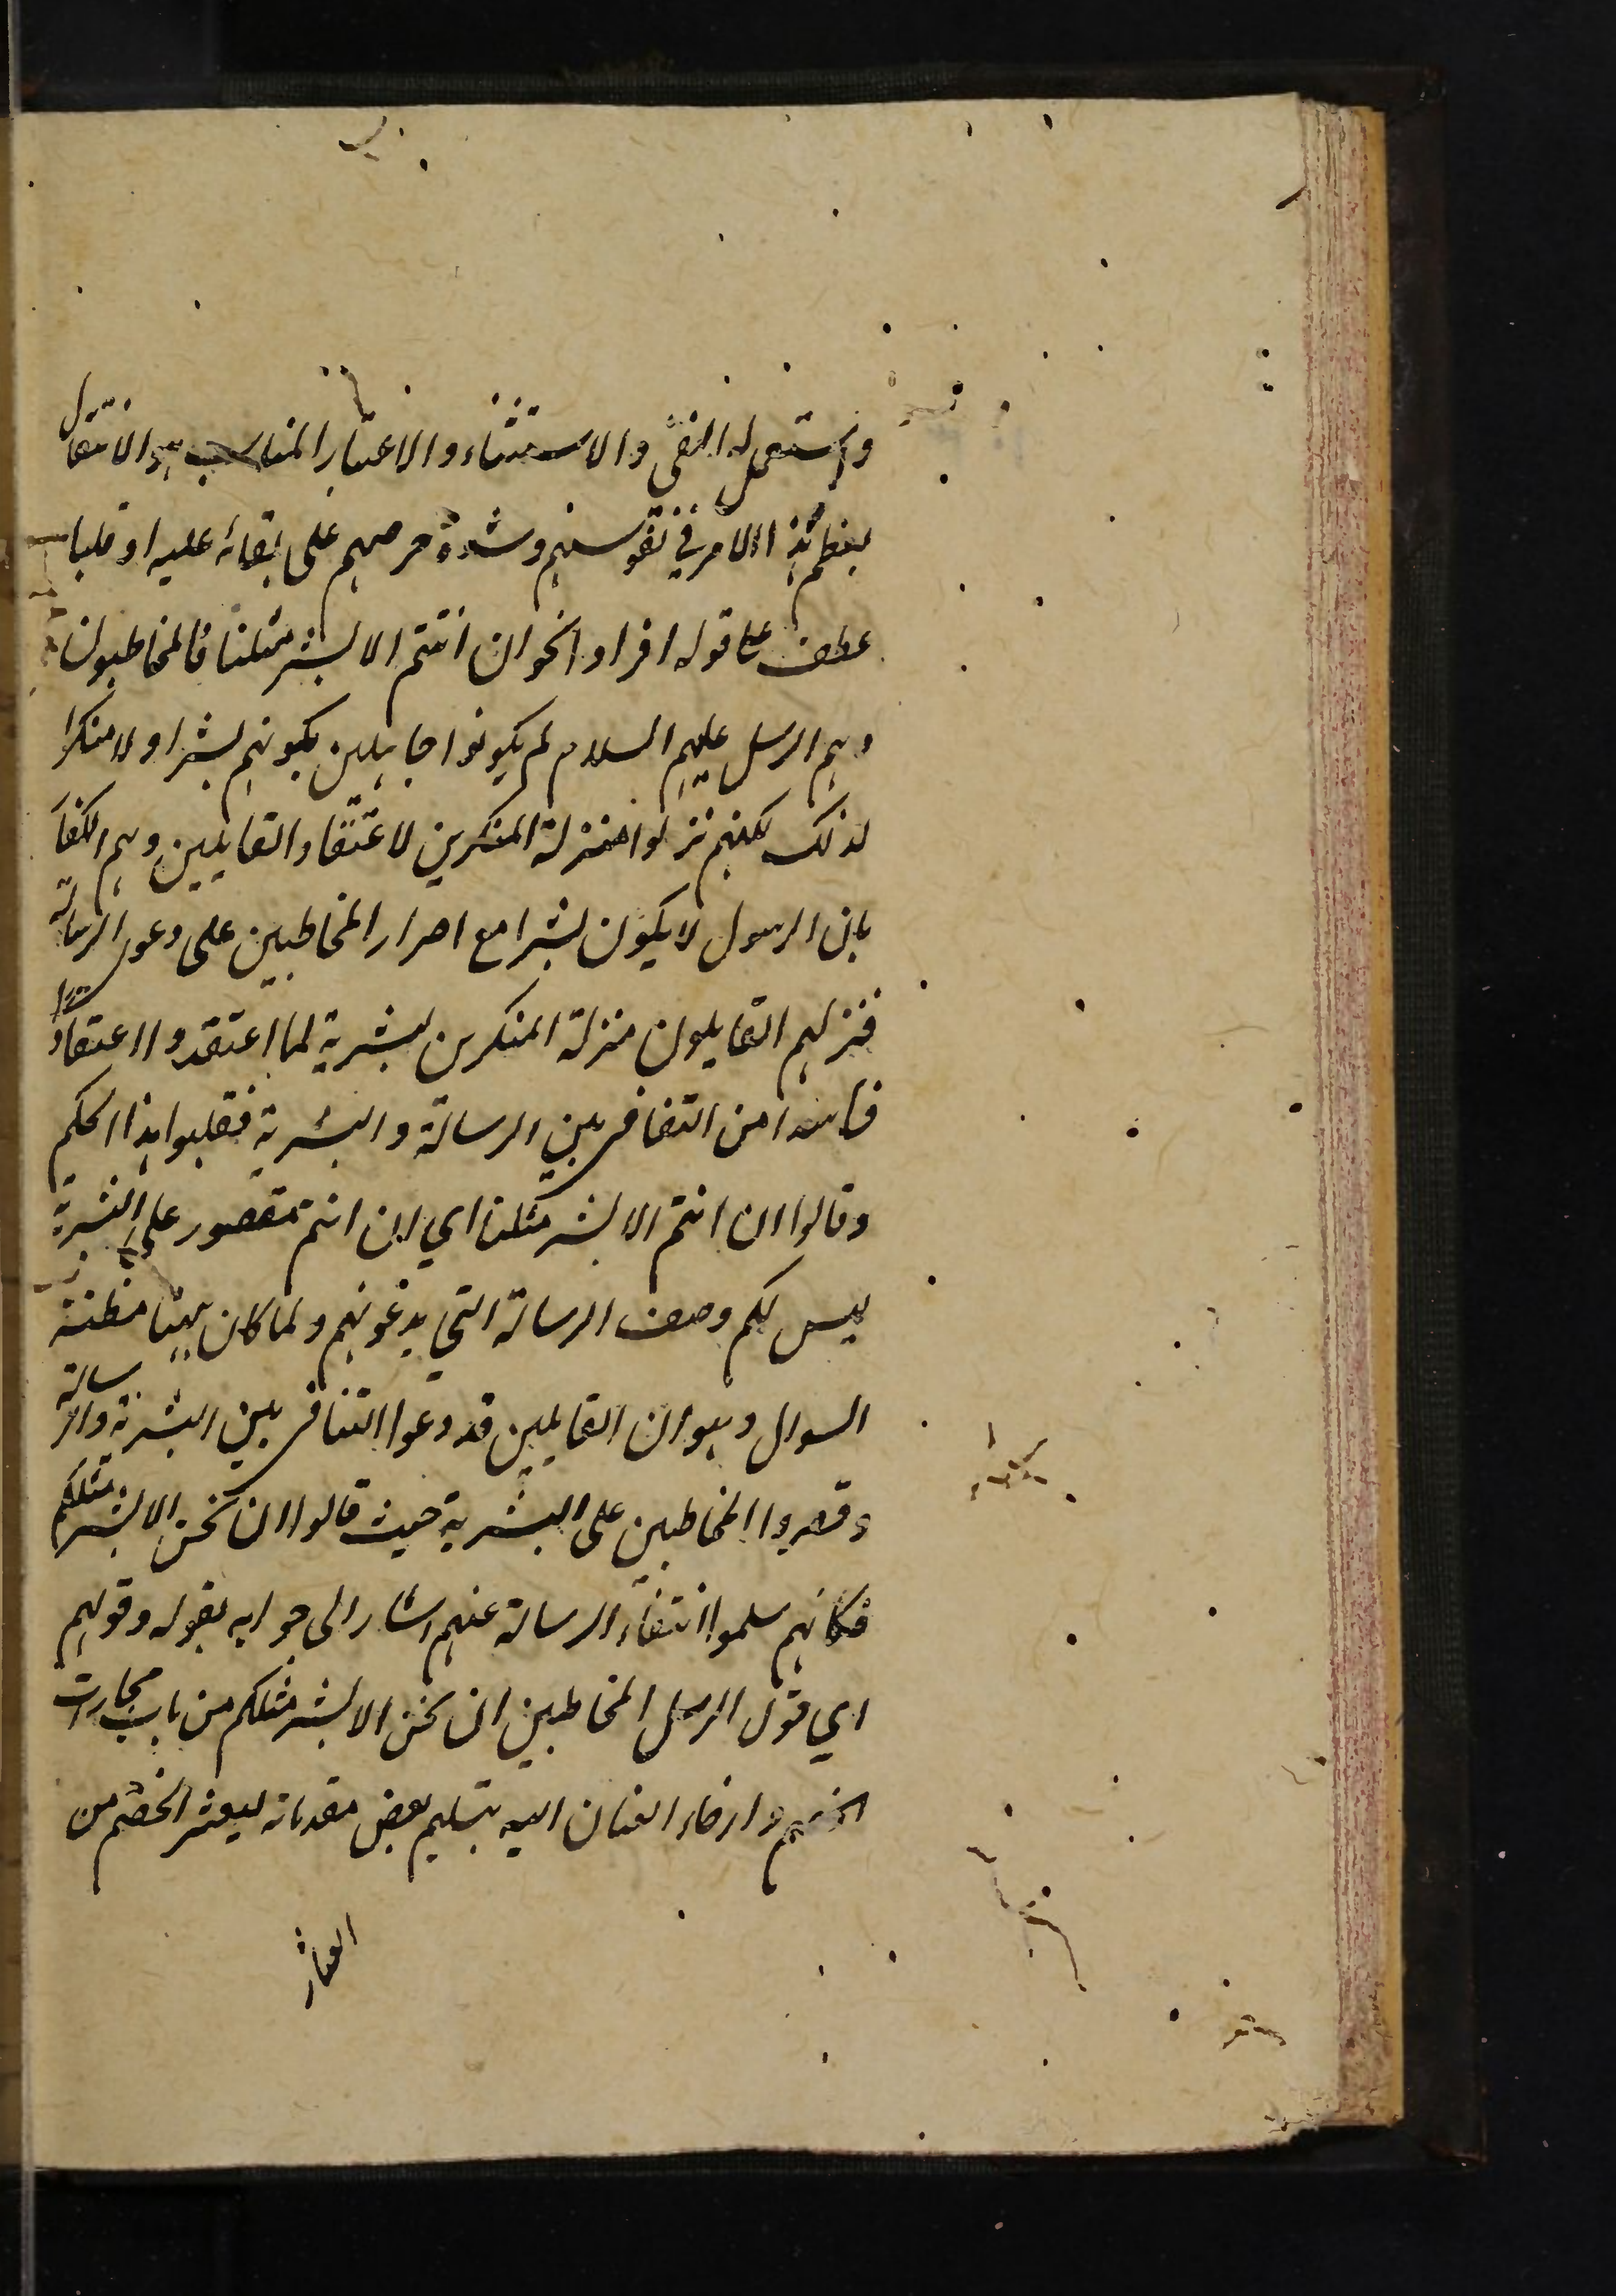 واستعمل له النفى والاستثناء والاعتبار المناسب هو الانتقال
بعظم هذا الامر في نفوسهم وشدة حرصهم على بقائه عليه او قلبا
عطف على قوله افرادا نحو ان انتم الا بشر مثلنا فالمخاطبون
وهم الرسل عليهم السلام لم يكونوا جاهلين بكونهم بشرا ولا منكرا
لذلك لكنهم نزلوا منزلة المنكرين لاعتقاد القايلين وهم الكفا
بان الرسول لا يكون بشرا مع اصرار المخاطبين على دعوى الرسالة
فنزلهم القايلون منزلة المنكرين لبشرية لما اعتقدوا اعتقادا
فاسدا من التنافى بين الرسالة والبشرية فقلبوا هذا الحكم
وقالوا ان انتم الا بشر مثلنا اي ان انتم مقصور على البشرية
ليس لكم وصف الرسالة التي يدعونهم ولما كان هنا مظنة
السوال وهو ان القايلين قد دعوا التنافى بين البشرية والرسالة
وقصروا المخاطبين على البشرية حيث قالوا ان نحن الا بشر مثلكم
فكانهم سلموا انتفاء الرسالة عنهم اشار الى جوابه بقوله وقولهم
اي قول الرسل المخاطبين ان نحن الا بشر مثلكم من باب مجارات
الخصم وارخاء العنان اليه بتسليم بعض مقدماته ليعثر الخصم من
العثار